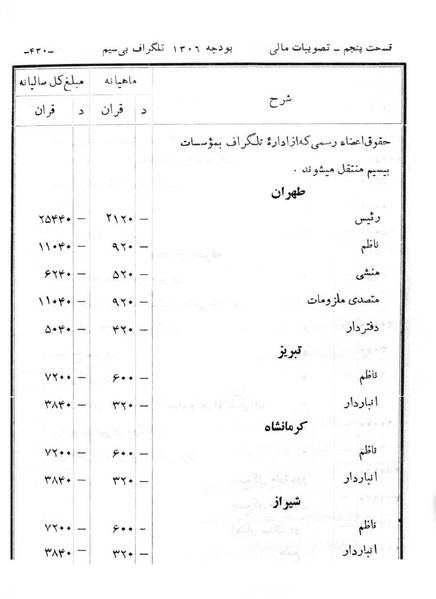 قسمت پنجم – تصویبات مالی بودجه ۱۳۰۶ تلگراف بی‌سیم –۴۳۰–
شرح ماهیانه مبلغ کل سالیانه
د قران د قران
حقوق اعضاء رسمی که از ادارهٔ تلگراف بمؤسسات
بیسیم منتقل میشوند .
طهران
رئیس – ۲۱۲۰ – ۲۵۴۴۰
ناظم – ۹۲۰ – ۱۱۰۴۰
منشی – ۵۲۰ – ۶۲۴۰
متصدی ملزومات – ۹۲۰ – ۱۱۰۴۰
دفتردار – ۴۲۰ – ۵۰۴۰
تبریز
ناظم – ۶۰۰ – ۷۲۰۰
انباردار – ۳۲۰ – ۳۸۴۰
کرمانشاه
ناظم – ۶۰۰ – ۷۲۰۰
انباردار – ۳۲۰ – ۳۸۴۰
شیراز
ناظم – ۶۰۰ – ۷۲۰۰
انباردار – ۳۲۰ – ۳۸۴۰